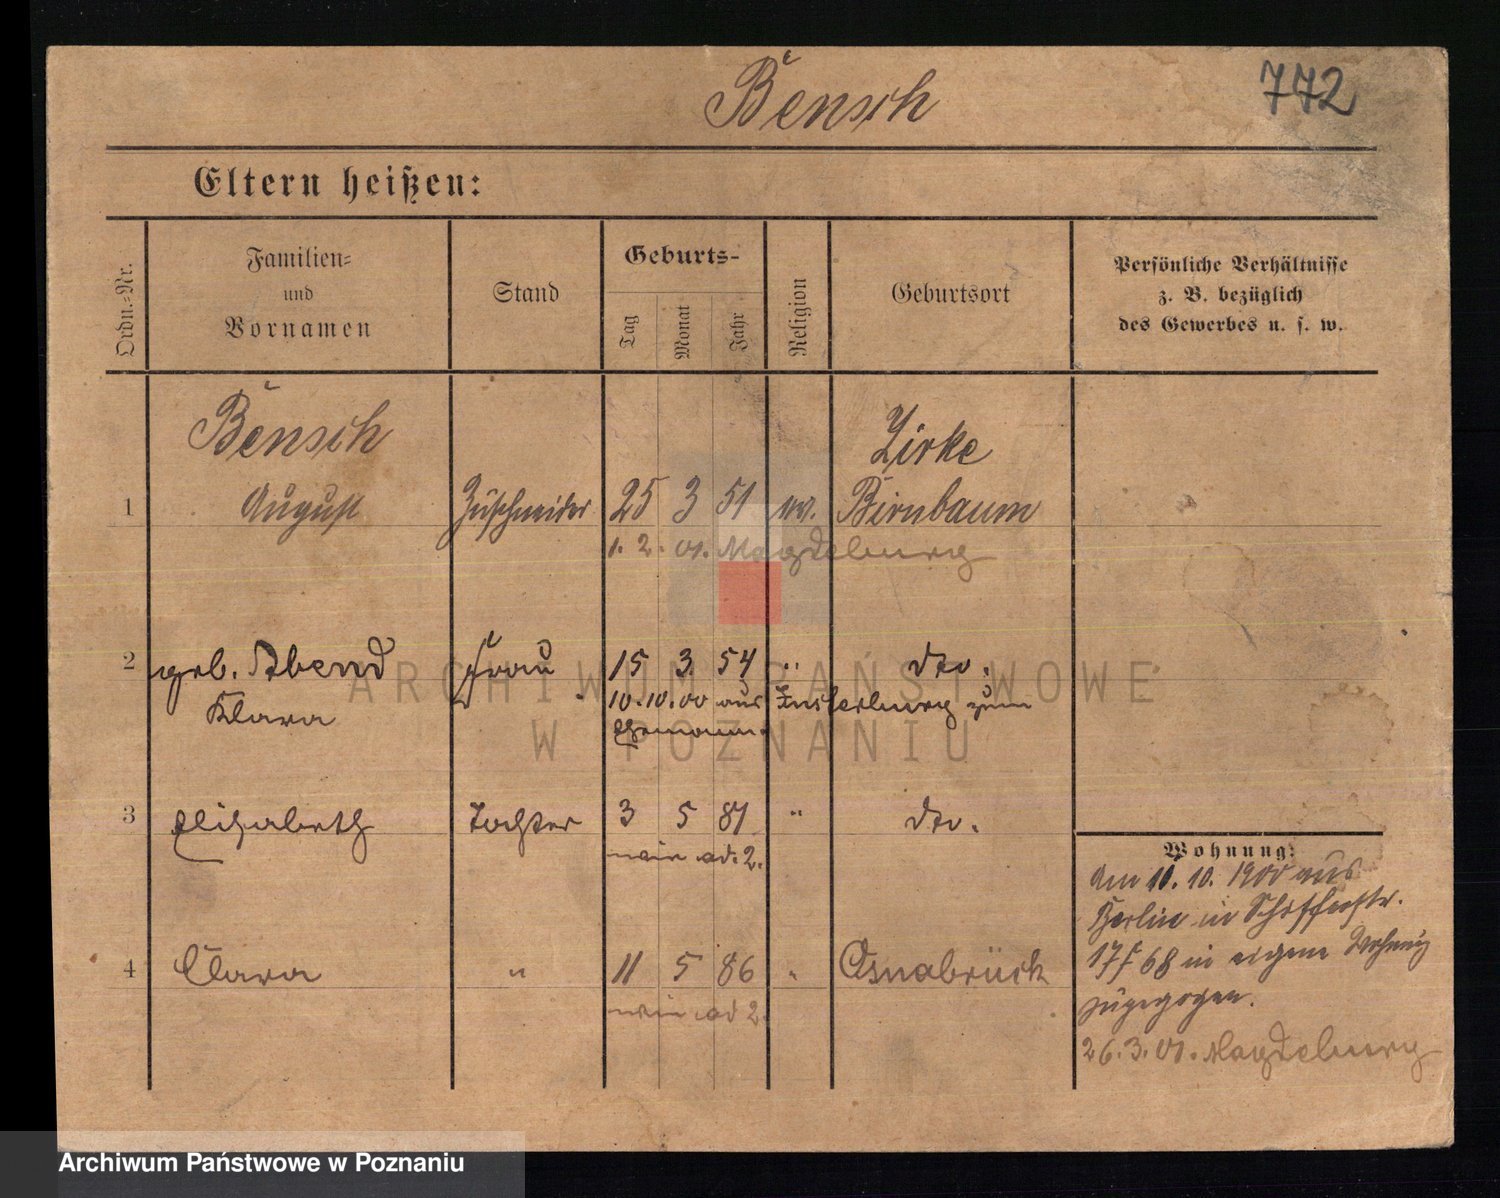 Bensch
772
Eltern heißen:
Ordn.-Nr.
Familien-
und
Vornamen
Stand
Geburts-
Tag
Monat
Jahr
Religion
Geburtsort
Persönliche Verhältnisse
z. B. bezüglich
des Gewerbes u. s. w.
Bensch
Zirke
1 August Zuschneider 25 3 51 ev. Birnbaum
1. 2. 01. Magdeburg
2 geb. Abend Frau 15 3 54 " dto.
Klara 10.10.00 aus Insterburg zum
Ehemann.
3 Elisabeth Tochter 3 5 81 " dto.
wie ad. 2.
4 Clara " 11 5 86 " Osnabrück
wie ad 2.
Wohnung:
Am 10. 10. 1900 aus
Berlin in
17/68 in eigene Wohnung
zugezogen.
26.3.01. Magdeburg
ARCHIWUM PAŃSTWOWE
W POZNANIU
Archiwum Państwowe w Poznaniu